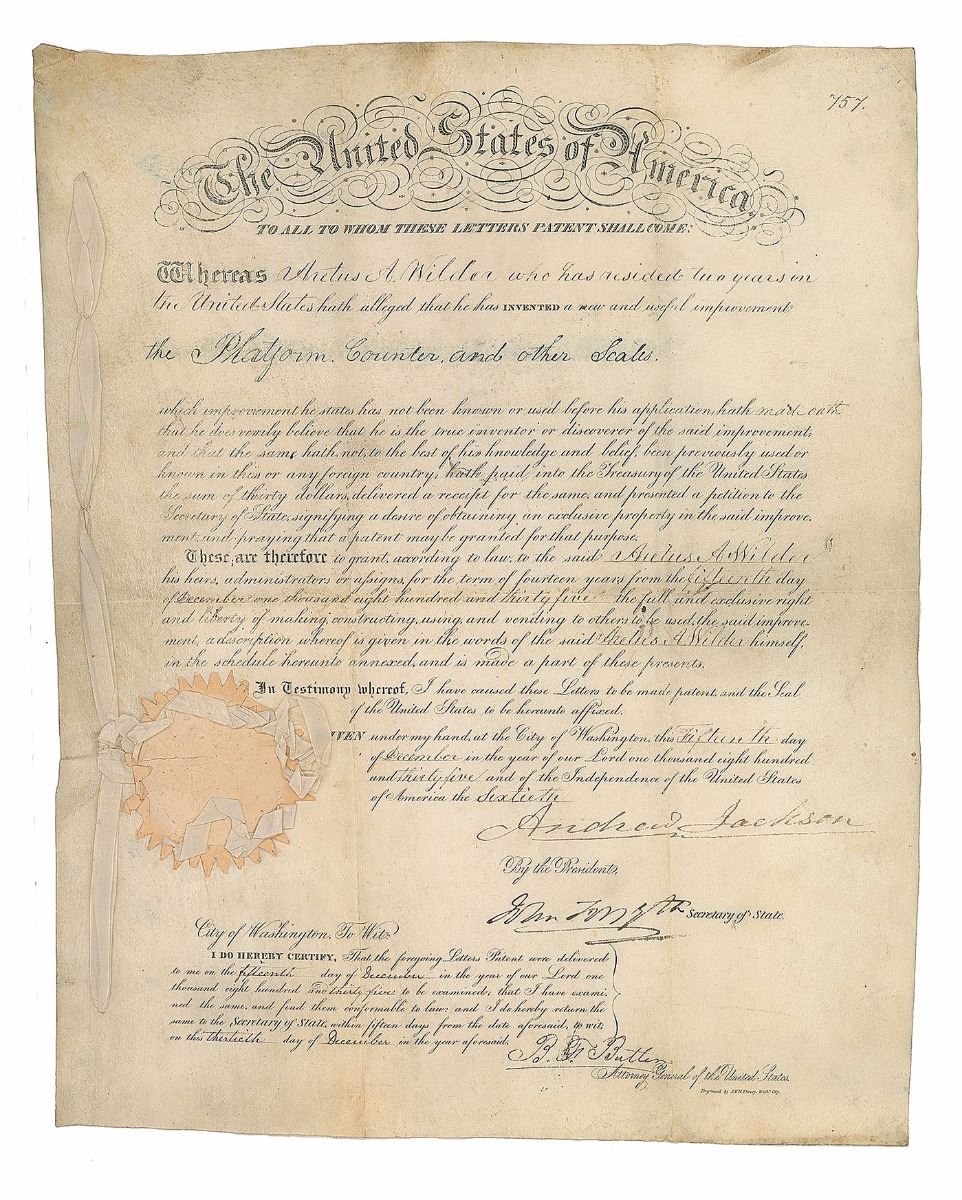 757.
The United States of America
TO ALL TO WHOM THESE LETTERS PATENT SHALL COME:
Whereas Aretus A. Wilder who has resided two years in
the United States hath alleged that he has INVENTED a new and useful improvement
the Platform. Counter, and other Scales.
which improvement he states has not been known or used before his application, hath made oath
that he does verily believe that he is the true inventor or discoverer of the said improvement;
and that the same hath, not, to the best of his knowledge and belief, been previously used or
known in this or any foreign country, hath paid into the Treasury of the United States
the sum of thirty dollars, delivered a receipt for the same, and presented a petition to the
Secretary of State, signifying a desire of obtaining an exclusive property in the said improve-
ment, and praying that a patent may be granted for that purpose.
These are therefore to grant, according to law, to the said Aretus A Wilder
his heirs, administrators or assigns, for the term of fourteen years from the fifteenth day
of December one thousand eight hundred and thirty five the full and exclusive right
and liberty of making, constructing, using, and vending to others to be used, the said improve-
ment, a description whereof is given in the words of the said Aretus A Wilder himself,
in the schedule hereunto annexed, and is made a part of these presents.
In Testimony whereof, I have caused these Letters to be made patent, and the Seal
of the United States to be hereunto affixed.
IVEN under my hand, at the City of Washington, this Fifteenth day
of December in the year of our Lord one thousand eight hundred
and thirty five and of the Independence of the United States
of America the Sixtieth
Andrew Jackson
By the President,
John Forsyth Secretary of State.
City of Washington, To Wit:
I DO HEREBY CERTIFY, That the foregoing Letters Patent were delivered
to me on the fifteenth day of December in the year of our Lord one
thousand eight hundred and thirty five to be examined; that I have exami-
ned the same, and find them conformable to law; and I do hereby return the
same to the Secretary of State, within fifteen days from the date aforesaid, to wit:
on this thirtieth day of December in the year aforesaid.
B. F. Butler
Attorney General of the United States.
Engraved by